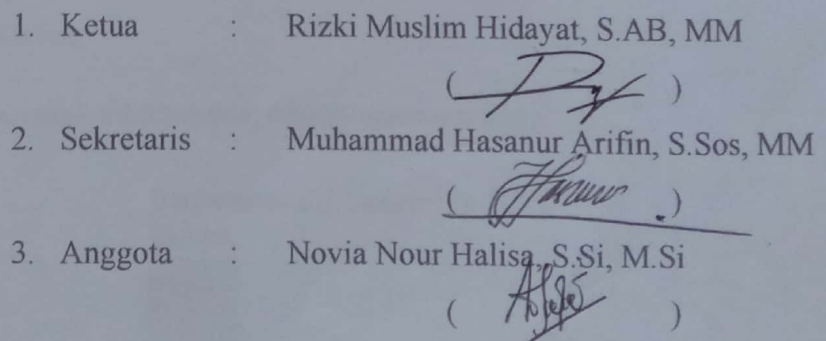 1. Ketua : Rizki Muslim Hidayat, S.AB, MM
( )
2. Sekretaris : Muhammad Hasanur Arifin, S.Sos, MM
( )
3. Anggota : Novia Nour Halisa, S.Si, M.Si
( )